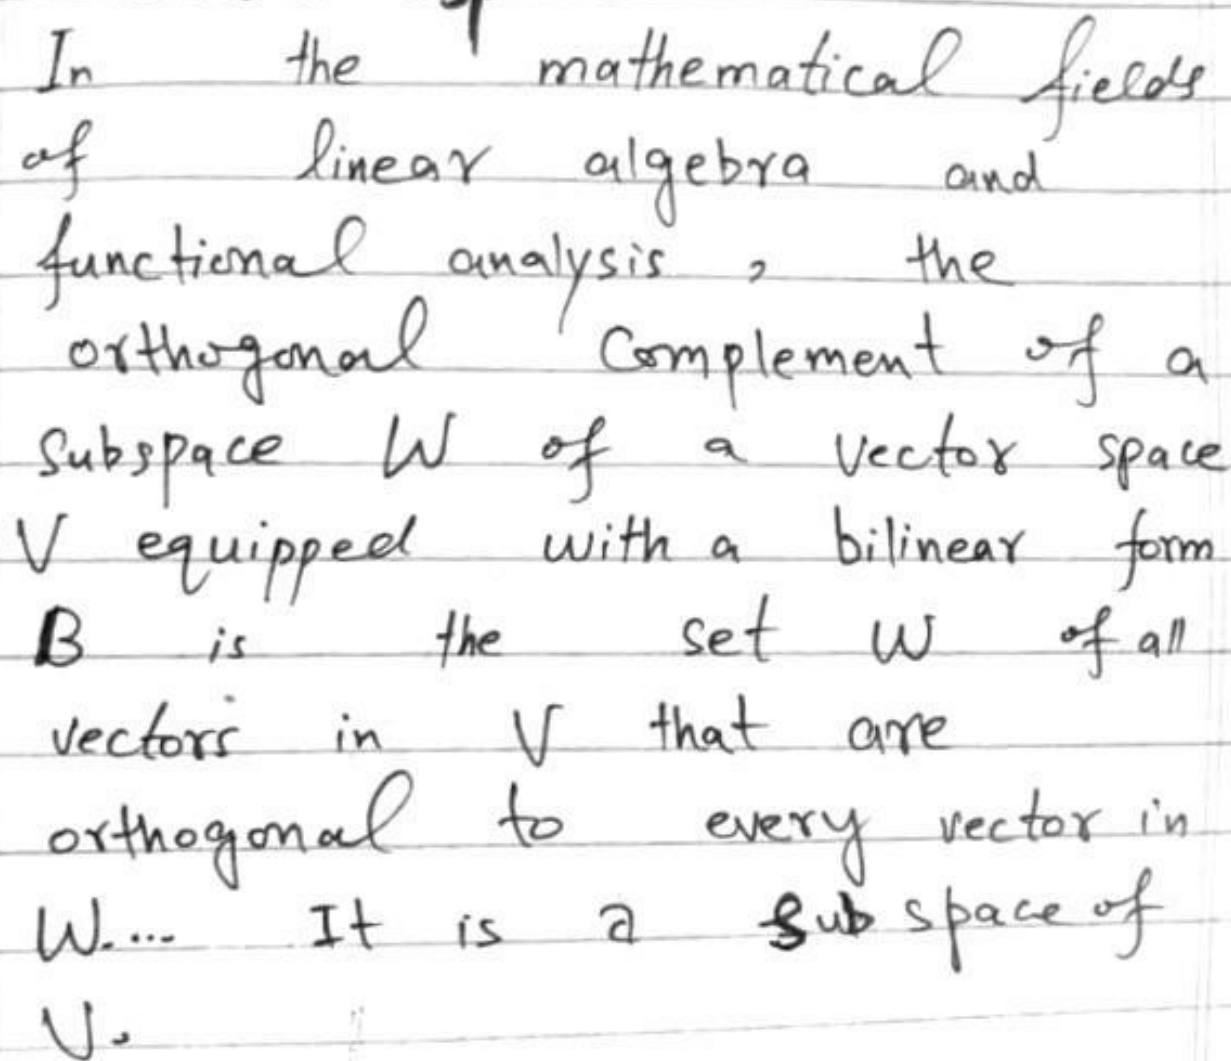 In the mathematical fields
of linear algebra and
functional analysis, the
orthogonal Complement of a
Subspace W of a vector space
V equipped with a bilinear form
B is the set W of all
vectors in V that are
orthogonal to every vector in
W.... It is a Sub space of
V.